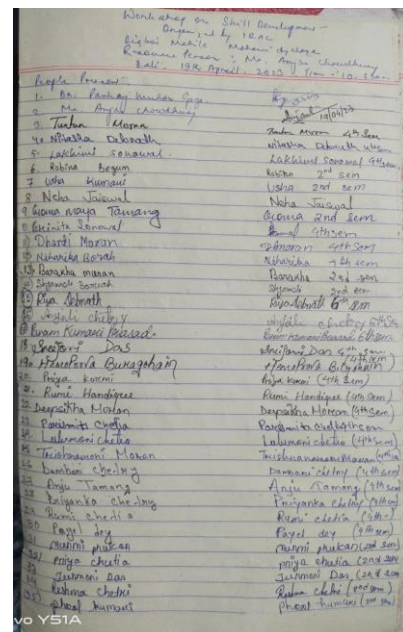 Workshop on Skill Development
Organized by IQAC
Digboi Mahila Mahavidyalaya
Resource Person : Ms. Anju Choudhury
Date: 19th April, 2023 Time - 10.30am
People Present
1. Dr. Pankaj Kumar
2. Ms. Anju Choudhury 19/04/23
3. Tuntun Moran Tuntun Moran 4th Sem
4. Nitasha Debnath Nitasha Debnath
5. Lakhimi Sonowal. Lakhimi Sonowal 4th sem
6. Robina Begum Robina 2nd sem
7 Usha Kumari Usha 2nd sem
8 Neha Jaiswal Neha Jaiswal
9 Maya Tamang 2nd sem
Sonowal 4th sem
Dhanti Moran 4th sem
Niharika Borah Niharika
Barasha moran Barasha 2nd sem
Borah 2nd sem
Riya Debnath Riya Debnath 6th sem
chetry chetry 6th Sem
Punam Kumari Prasad. Punam Kumari Prasad 6th sem
18. Das Das (4th sem)
19. Buragohain
Priya kormi Priya Kormi (4th Sem)
Rumi Handique Rumi Handique (4th Sem)
Deepsikha Moran Deepsikha Moran (4th Sem)
Paromita Chetia Paromita 4th sem
Lalumoni chetia Lalumoni chetia (4th Sem)
Trishnamoni Moran Trishnamoni Moran
chetry chetry (4th sem)
Anju Tamang Anju Tamang (4th sem)
Priyanka chetry Priyanka chetry (4th sem)
Rumi chetia Rumi chetia
30 Payel dey Payel dey (4th sem)
31 Munmi phukan Munmi phukan (2nd sem)
32 Priya chutia priya chutia (2nd sem)
33 Jurmoni Das Jurmoni Das (2nd sem)
34 Reshma chetri chetri (2nd sem)
35 phool kumari phool kumari (2nd sem)
vo Y51A